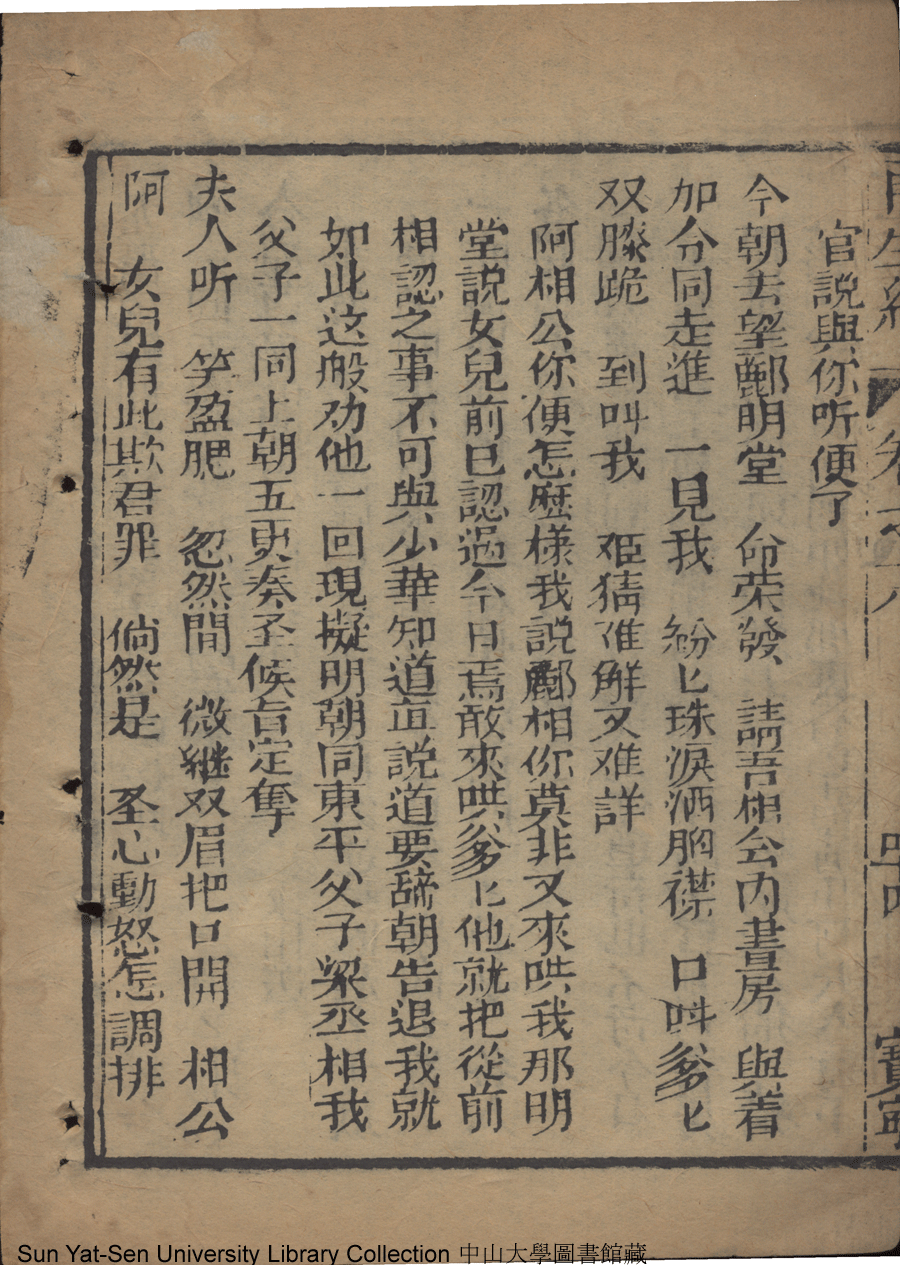 官説與你听便了
今朝去望酈明堂　命荣發　請吾相公内書房　與着
加分同走進　一見我　紛匕珠淚洒胸襟　口呌爹匕
双膝跪　到叫我　猜准解又难詳
阿相公你便怎麽様我説酈相你莫非又來哄我那明
堂説女兒前已認過今日焉敢來哄爹匕他就把從前
相認之事不可與少華知道直説道要辞朝告退我就
如此这般劝他一回現擬明朝同東平父子梁丞相我
父子一同上朝五更奏圣候旨定奪
夫人听　笋盈肥　忽然間　微継双眉把口開　相公
阿　女兒有此欺君罪　倘然是　圣心動怒怎調排
Sun Yat-Sen University Library Collection 中山大學圖書館藏